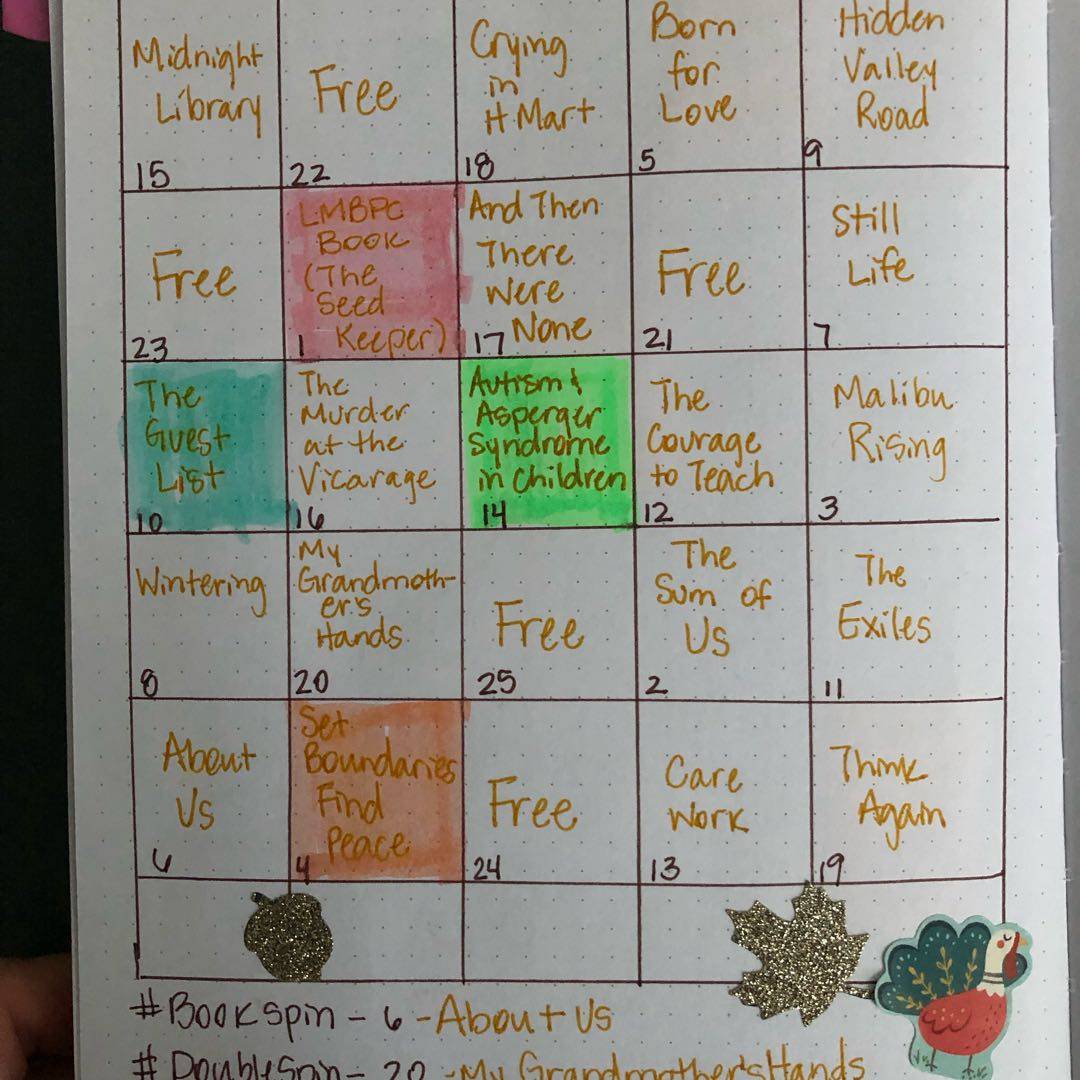 Midnight
Library
15
Free
22
Crying
in
H Mart
18
Born
for
Love
5
Hidden
Valley
Road
9
Free
23
LMBPC
Book
(The
Seed
Keeper)
1
And Then
There
Were
None
17
Free
21
Still
Life
7
The
Guest
List
10
The
Murder
at the
Vicarage
16
Autism &
Asperger
Syndrome
in Children
14
The
Courage
to Teach
12
Malibu
Rising
3
Wintering
8
My
Grandmoth-
er's
Hands
20
Free
25
The
Sum of
Us
2
The
Exiles
11
About
Us
6
Set
Boundaries
Find
Peace
4
Free
24
Care
Work
13
Think
Again
19
#Bookspin - 6 - About Us
#DoubleSpin - 20 - My Grandmother's Hands